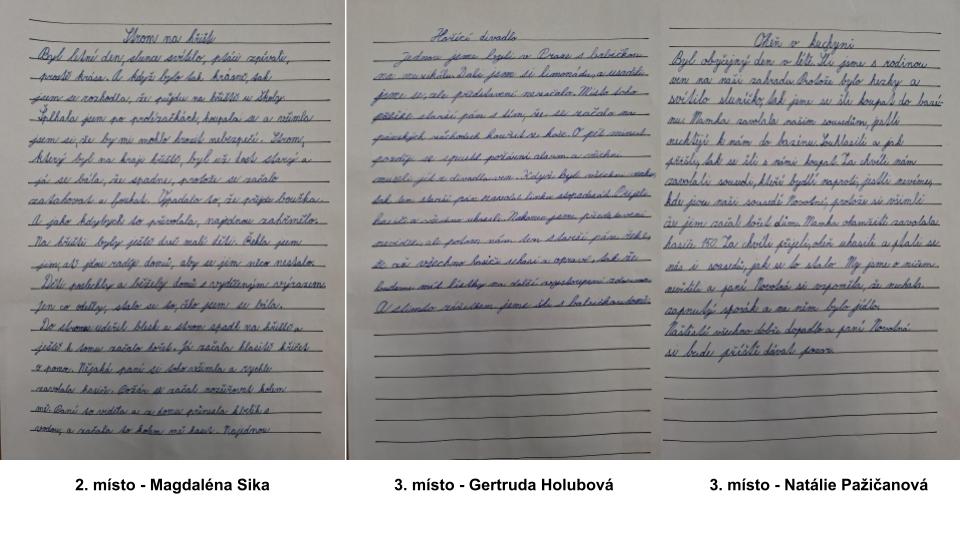 Strom na hřišti
Byl letní den, slunce svítilo, ptáci zpívali,
prostě krása. A když bylo tak krásně, tak
jsem se rozhodla, že půjdu na hřiště u školy.
Šplhala jsem po prolézačkách, houpala se a všimla
jsem si, že by mi mohlo hrozit nebezpečí. Strom,
který byl na kraji hřiště, byl už dost starý a
já se bála, že spadne, protože se začalo
zatahovat a foukat. Vypadalo to, že přijde bouřka.
A jako kdybych to přivolala, najednou zahřmělo.
Na hřišti byly ještě dvě malé děti. Řekla jsem
jim, ať jdou raději domů, aby se jim něco nestalo.
Děti poslechly a běžely domů s vyděšeným výrazem.
Jen co odešly, stalo se to, čeho jsem se bála.
Do stromu udeřil blesk a strom spadl na hřiště a
ještě k tomu začalo hořet. Já začala hlasitě křičet
o pomoc. Nějaká paní si toho všimla a rychle
zavolala hasiče. Požár se začal rozšiřovat kolem
mě. Paní to viděla a z domu přinesla kbelík s
vodou, a začala to kolem mě hasit. Najednou
Hořící divadlo
Jednou jsme byli v Praze s babičkou
na muzikálu. Dali jsme si limonádu, a usadili
jsme se, ale představení nezačalo. Místo toho
přišel starší pán s tím, že se začalo na
pánských záchodech kouřit z koše. O pět minut
později se spustil požární alarm a všichni
museli jít z divadla ven. Když byli všichni venku,
tak ten starší pán zavolal linku stopadesát. Přijeli
hasiči a všechno uhasili. Nakonec jsme představení
neviděli, ale potom nám ten starší pán řekl,
že až všechno hasiči uhasí a opraví, tak že
budeme mít lístky na další vystoupení zdarma.
A s tímto zážitkem jsme šli s babičkou domů.
Oheň v kuchyni
Byl obyčejný den v létě. Šli jsme s rodinou
ven na naši zahradu. Protože bylo hezky a
svítilo sluníčko, tak jsme se šli koupat do bazé-
nu. Mamka zavolala našim sousedům, jestli
nechtějí k nám do bazénu. Souhlasili a jak
přišli, tak se šli s námi koupat. Za chvíli nám
zavolali sousedi, kteří bydlí naproti, jestli nevíme,
kde jsou naši sousedi Novotní, protože si všimli
že jim začal hořet dům. Mamka okamžitě zavolala
hasiče 150. Za chvíli přijeli, oheň uhasili a ptali se
nás i sousedů, jak se to stalo. My jsme o ničem
nevěděli a paní Novotná si vzpomněla, že nechala
zapnutý sporák a na něm bylo jídlo.
Naštěstí všechno dobře dopadlo a paní Novotná
si bude příště dávat pozor.
2. místo - Magdaléna Sika
3. místo - Gertruda Holubová
3. místo - Natálie Pažičanová